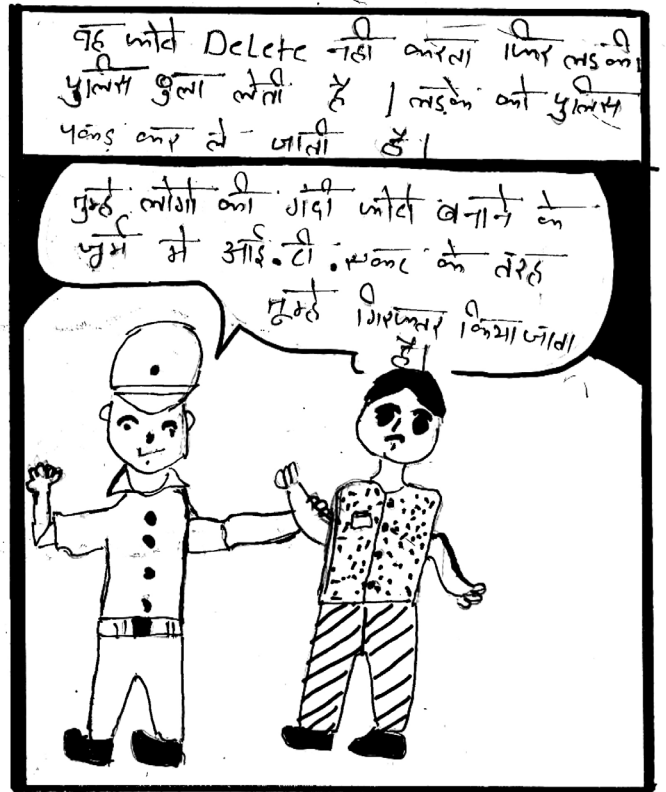 वह फोटो Delete नही करता फिर लडकी
पुलिस बुला लेती है । लड़के को पुलिस
पकड़ कर ले जाती है ।
तुम्हे लोगो की गंदी फोटो बनाने के
जुर्म मे आई.टी. एकट के तरह
तूम्हे गिरफ्तर किया जाता
है ।